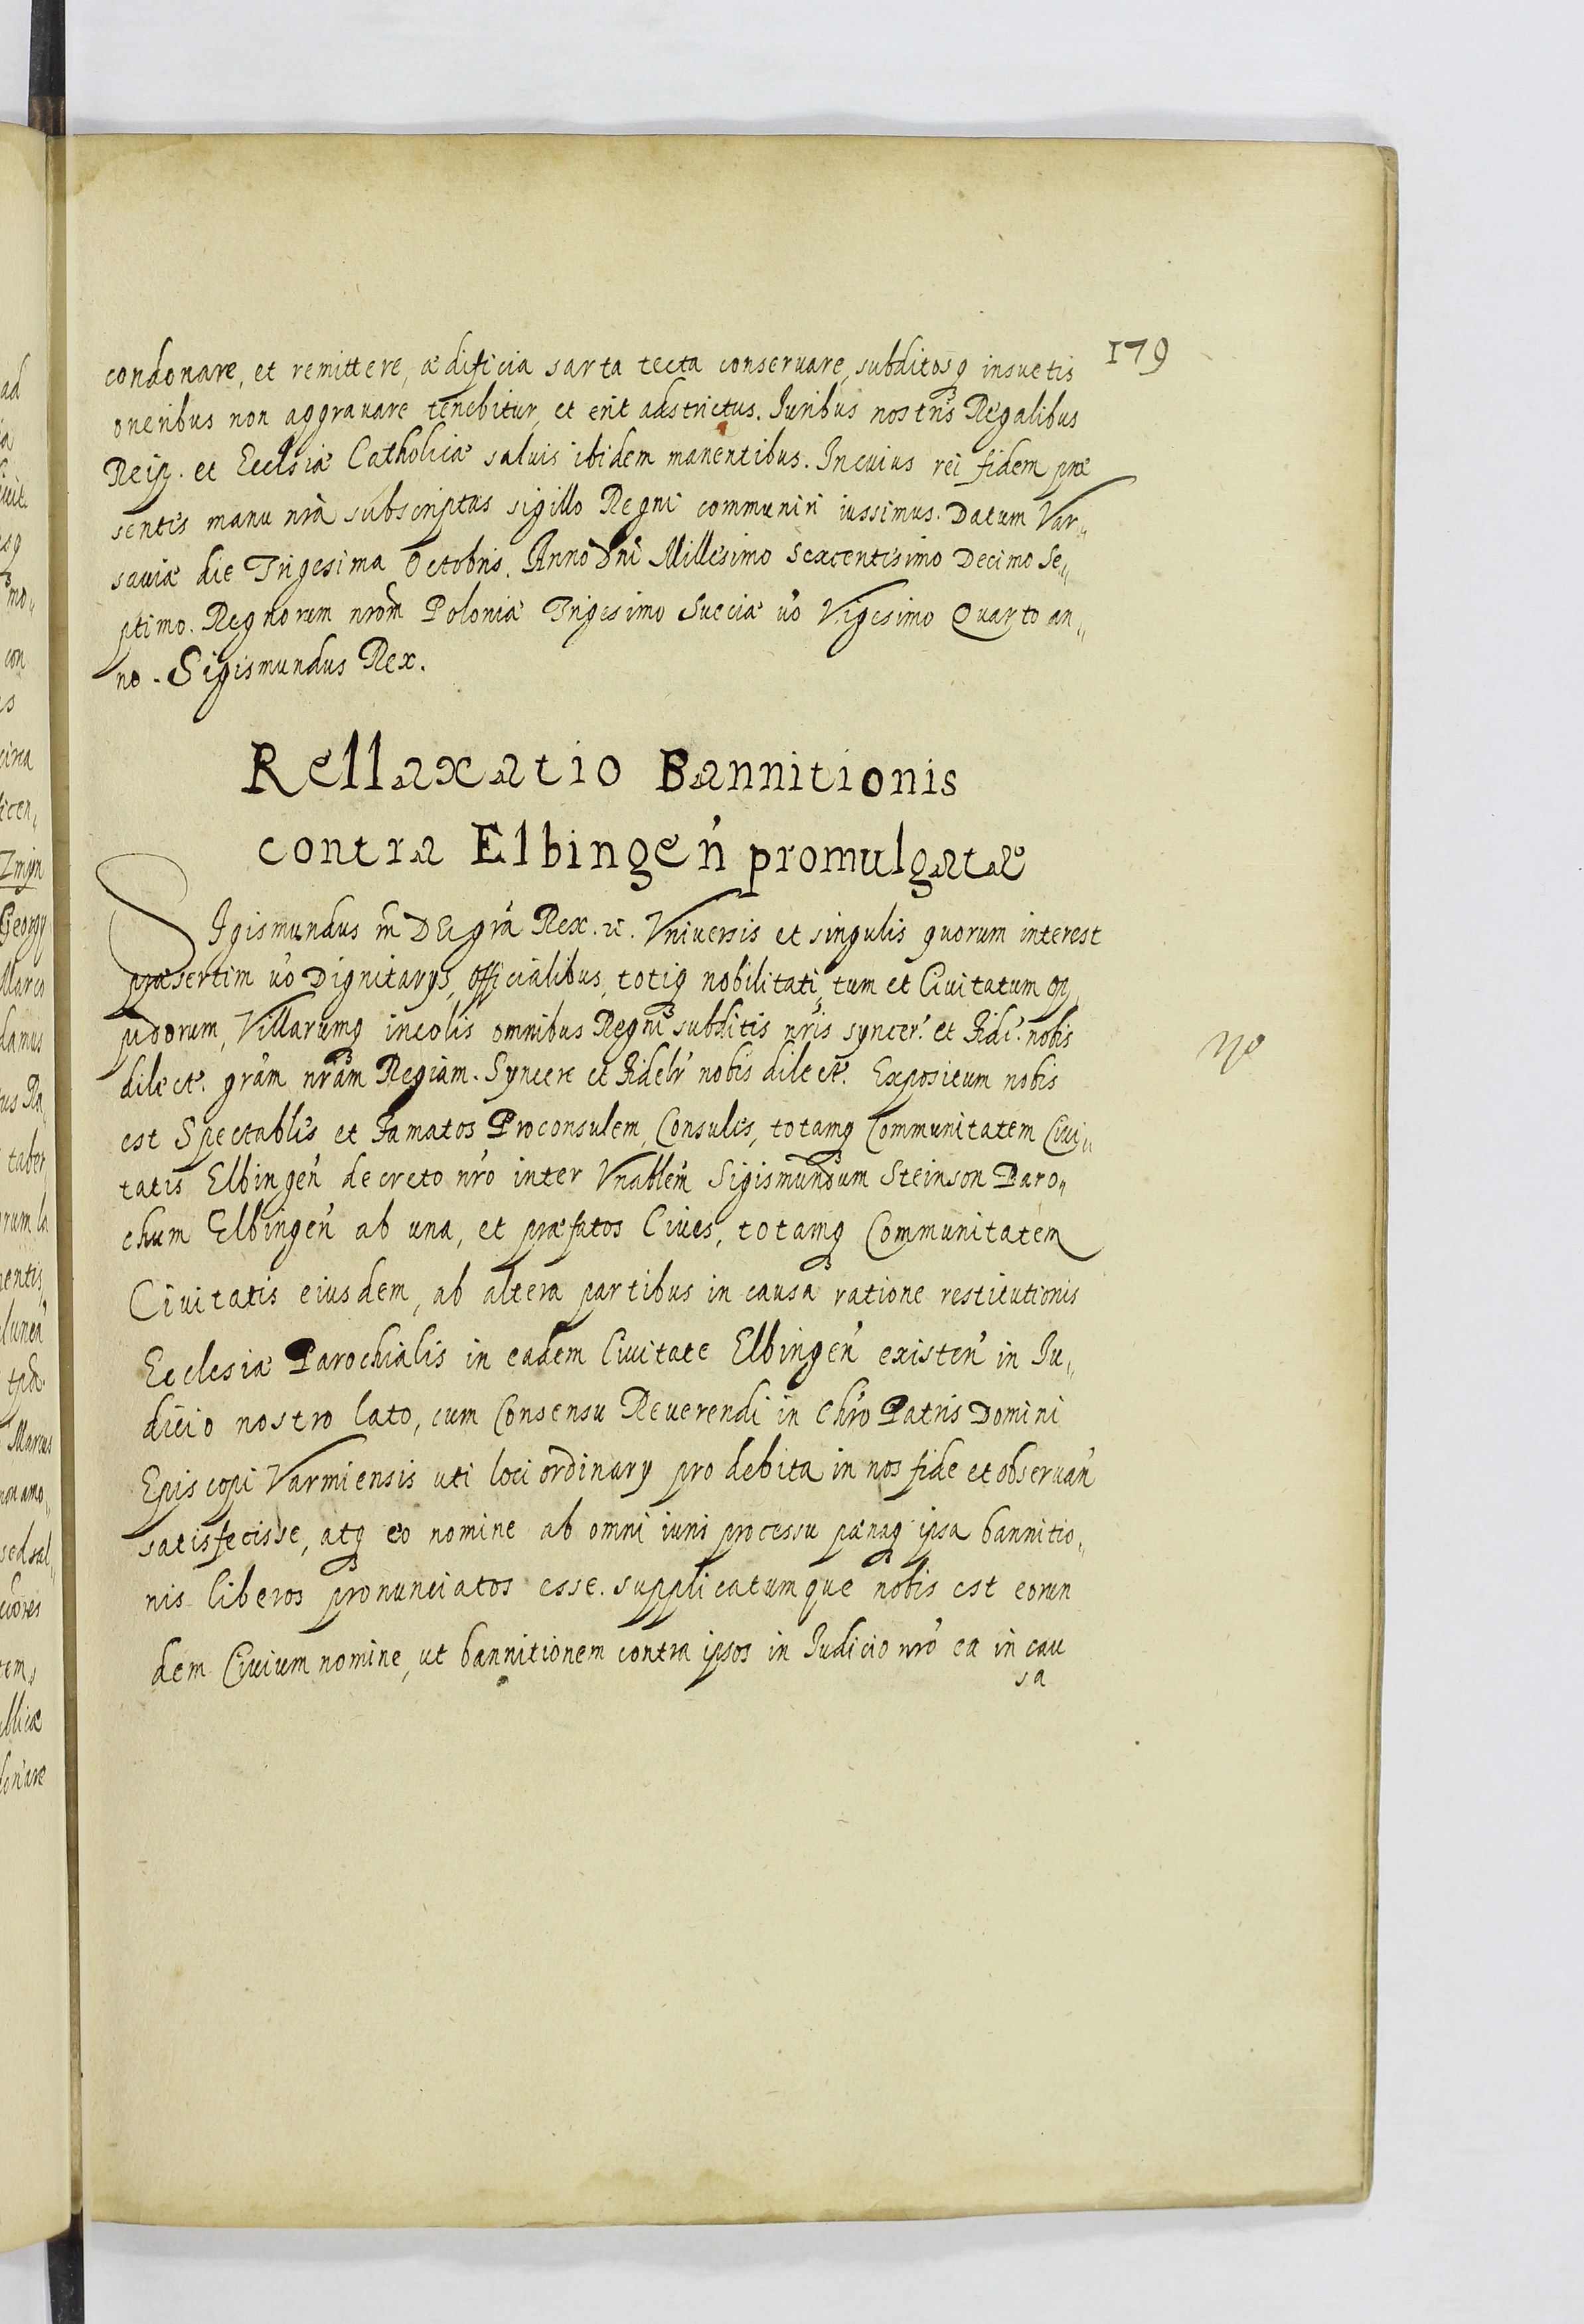 179
condonare, et remittere, ædificia sarta tecta conseruare, subditosq3 insuetis
oneribus non aggrauare tenebitur, et erit adstrictus. Iuribus nostris Regalibus
Reip. et Ecclsiæ Catholicæ saluis ibidem manentibus. In cuius rei fidem præ
sentis manu nrà subscriptas sigillo Regni communiri iussimus. Datum Var„
sauiæ die Trigesima Octobris. Anno Dni Millesimo Sexcentesimo Decimo Se„
ptimo. Regnorum nrom Poloniæ Trigesimo Sueciæ uo Vigesimo Quarto an„
no. Sigismundus Rex.
Rellaxatio Bannitionis
contra Elbingen promulgatæ
SIgismundus DEI gra Rex. Vniuersis et singulis quorum interest
præsertim uo Dignitarys, officialibus, totiq3 nobilitati, tum et Ciuitatum op„
pidorum, Villarumq3 incolis omnibus Regni subditis nris syncer. et Fidel. nobis
No
dilect. gram nram Regiam. Syncere et Fideles nobis dilect. Expositum nobis
est Spectabls et Famatos Proconsulem, Consules, totamq3 Communitatem Ciui„
tatis Elbingen decreto nro inter Vnablem Sigismundum Steinson Paro„
chum Elbingen ab una, et præfatos Ciues, totamq3 Communitatem
Ciuitatis eiusdem, ab altera partibus in causa ratione restitutionis
Ecclesiæ Parochialis in eadem Ciuitate Elbingen existen in Iu„
dicio nostro lato, cum Consensu Reuerendi in Chro Patris Domini
Episcopi Varmiensis uti loci ordinary pro debita in nos fide et obseruan
satisfecisse, atq3 eo nomine ab omni iuris processu pænaq3 ipsa bannitio„
nis liberos pronunciatos esse. supplicatumque nobis est eorun
dem Ciuium nomine, ut bannitionem contra ipsos in Iudicio nro ea in cau
sa